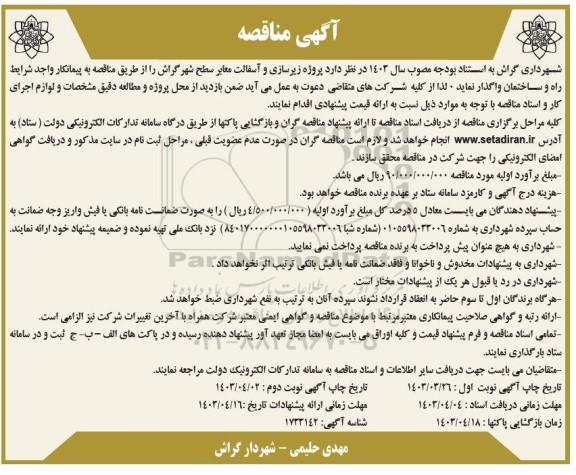 آگهی مناقصه
شهرداری گراش به استناد بودجه مصوب سال ۱۴۰۳ در نظر دارد پروژه زیرسازی و آسفالت معابر سطح شهر گراش را از طریق مناقصه به پیمانکار واجد شرایط
راه و ساختمان واگذار نماید . لذا از کلیه شرکت های متقاضی دعوت به عمل می آید ضمن بازدید از محل پروژه و مطالعه دقیق مشخصات و لوازم اجرای
کار و اسناد مناقصه با توجه به موارد ذیل نسبت به ارائه قیمت پیشنهادی اقدام نمایند.
کلیه مراحل برگزاری مناقصه از دریافت اسناد مناقصه تا ارائه پیشنهاد مناقصه گران و بازگشایی پاکتها از طریق درگاه سامانه تدارکات الکترونیکی دولت ( ستاد) به
آدرس www.setadiran.ir انجام خواهد شد و لازم است مناقصه گران در صورت عدم عضویت قبلی ، مراحل ثبت نام در سایت مذکور و دریافت گواهی
امضای الکترونیکی را جهت شرکت در مناقصه محقق سازند .
-مبلغ برآورد اولیه مورد مناقصه ۹۰/۰۰۰/۰۰۰/۰۰۰ ریال می باشد.
-هزینه درج آگهی و کارمزد سامانه ستاد بر عهده برنده مناقصه خواهد بود.
-پیشنهاد دهندگان می بایست معادل ۵ درصد کل مبلغ برآورد اولیه ( ۴/۵۰۰/۰۰۰/۰۰۰ ریال ) را به صورت ضمانت نامه بانکی یا فیش واریز وجه ضمانت به
حساب سپرده شهرداری به شماره ۰۱۰۵۵۹۸۰۳۳۰۰۶ (شماره شبا ) نزد بانک ملی تهیه نموده و ضمیمه پیشنهاد خود ارائه نمایند.
- شهرداری به هیچ عنوان پیش پرداخت به برنده مناقصه پرداخت نمی نمایید.
-شهرداری به پیشنهادات مخدوش و ناخوانا و فاقد ضمانت نامه یا فیش بانکی ترتیب اثر نخواهد داد .
-شهرداری در رد یا قبول هر یک از پیشنهادات مختار است.
-هرگاه برندگان اول تا سوم حاضر به انعقاد قرارداد نشوند سپرده آنان به ترتیب به نفع شهرداری ضبط خواهد شد.
-ارائه رتبه و گواهی صلاحیت پیمانکاری معتبر مرتبط با موضوع مناقصه و گواهی ایمنی معتبر شرکت همراه با آخرین تغییرات شرکت نیز الزامی است.
-تمامی اسناد مناقصه و فرم پیشنهاد قیمت و کلیه اوراق می بایست به امضا مجاز تعهد آور پیشنهاد دهنده رسیده و در پاکت های الف – ب- ج ثبت و در سامانه
ستاد بارگذاری نمایند.
-متقاضیان می بایست جهت دریافت سایر اطلاعات و اسناد مناقصه به سامانه تدارکات الکترونیک دولت مراجعه نمایند.
تاریخ چاپ آگهی نوبت اول : ۱۴۰۳/۰۳/۲۶ تاریخ چاپ آگهی نوبت دوم : ۱۴۰۳/۰۴/۰۲
مهلت زمانی دریافت اسناد : ۱۴۰۳/۰۴/۰۴ مهلت زمانی ارائه پیشنهادات تاریخ :۱۴۰۳/۰۴/۱۶
زمان بازگشایی پاکتها : ۱۴۰۳/۰۴/۱۸ شناسه آگهی: ۱۷۳۳۱۴۲
مهدی حلیمی – شهردار گراش
ParsNamadData
۰۲۱-۸۸۳۴۹۶۷۰-۵